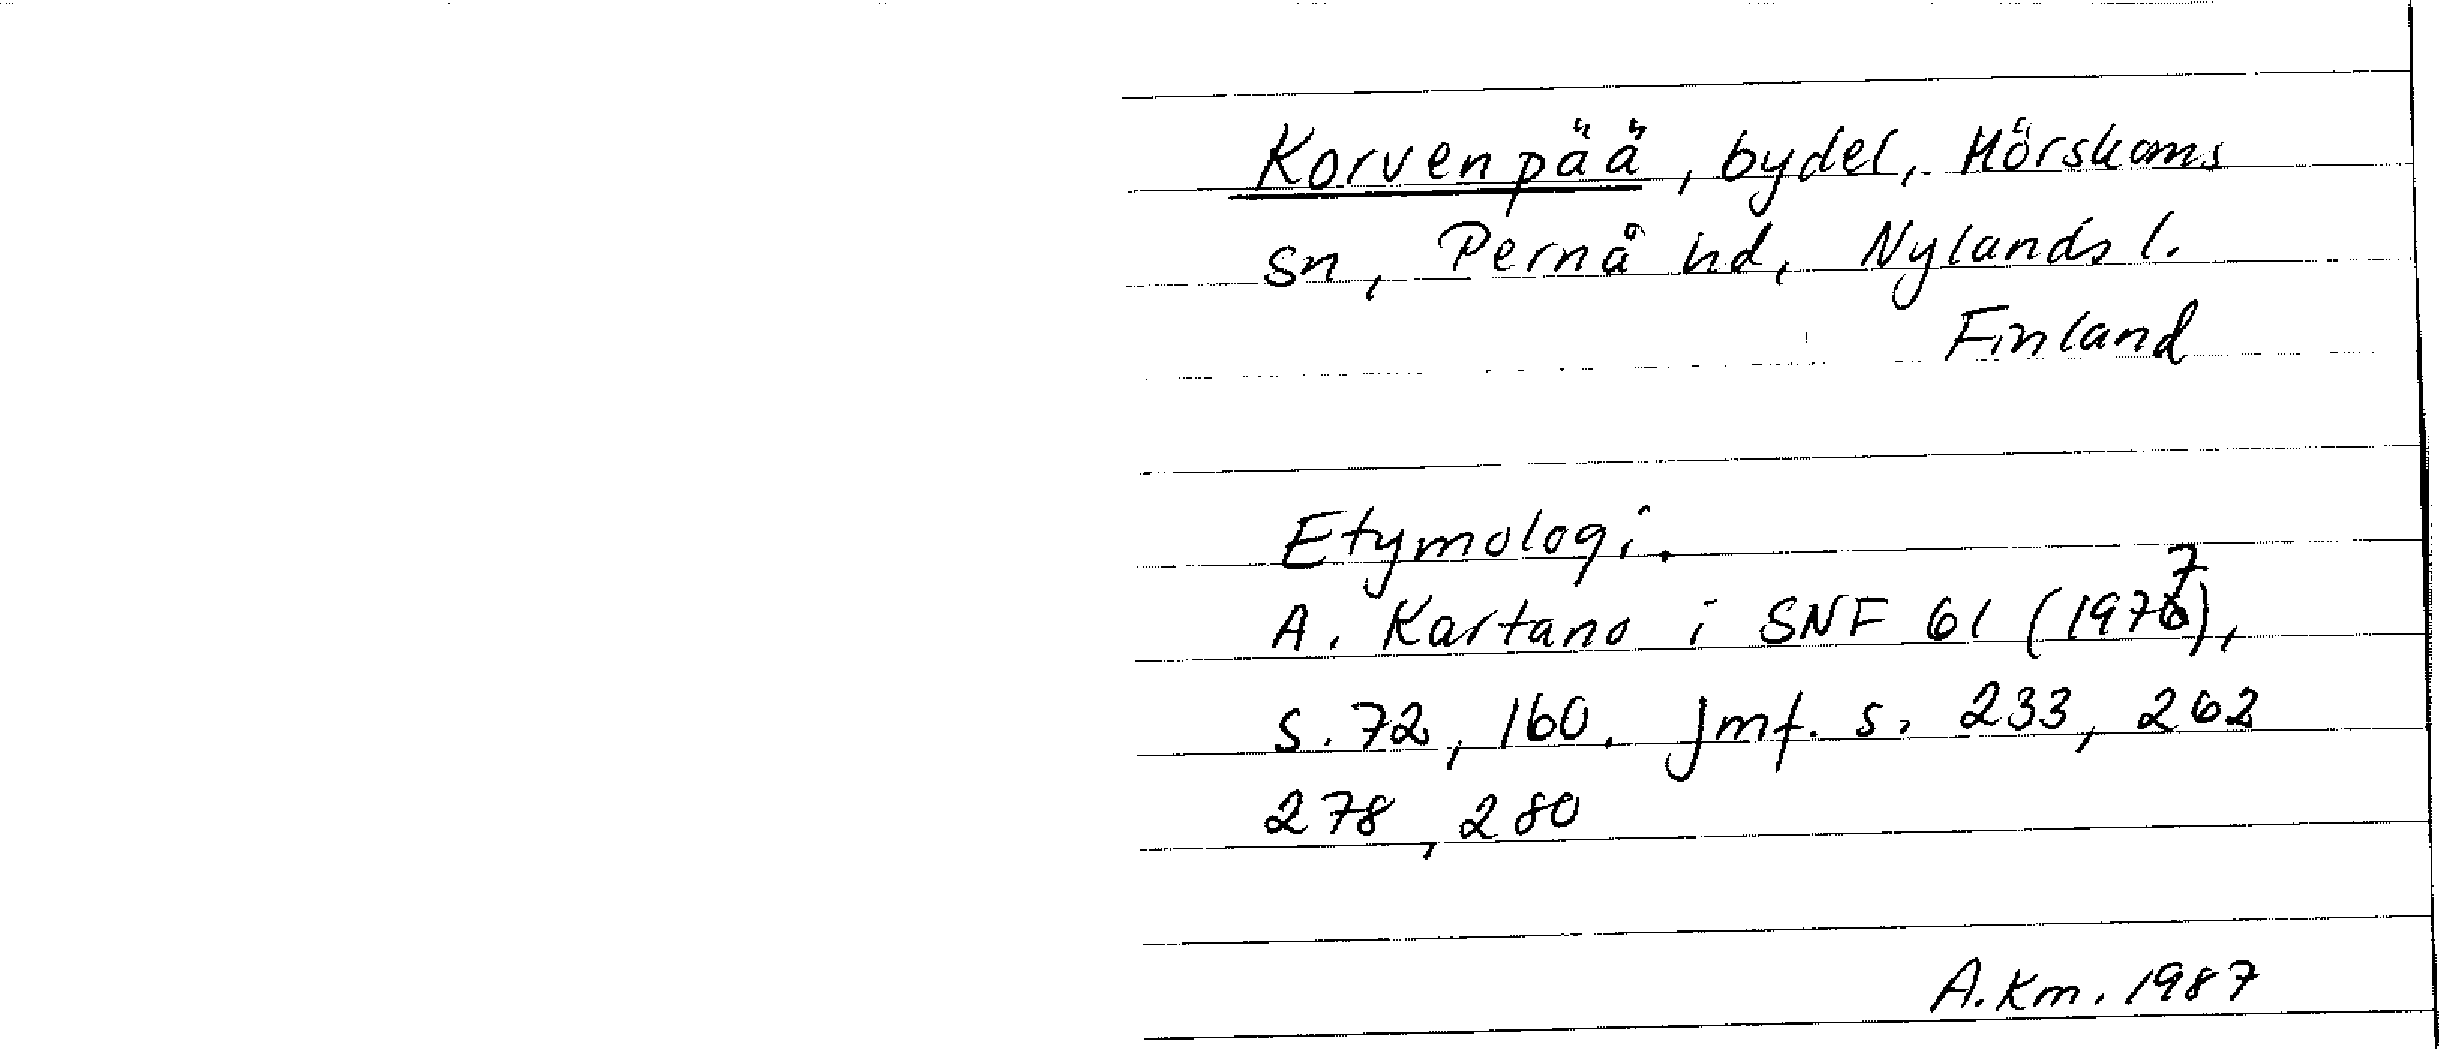 Korvenpää, bydel, Mörskoms
sn, Pernå hd, Nylands l.
Finland
Etymologi.
A. Kartano i SNF 61 (1977),
s. 72, 160. Jmf. s. 233, 262
278, 280
A.Km. 1987